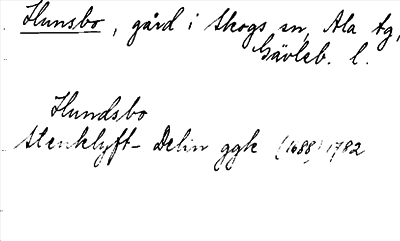 Hunsbo, gård i Skogs sn, Ala tg,
Gävleb. l.
Hundsbo
Stenklyft-Delin ggk (1688) 1782